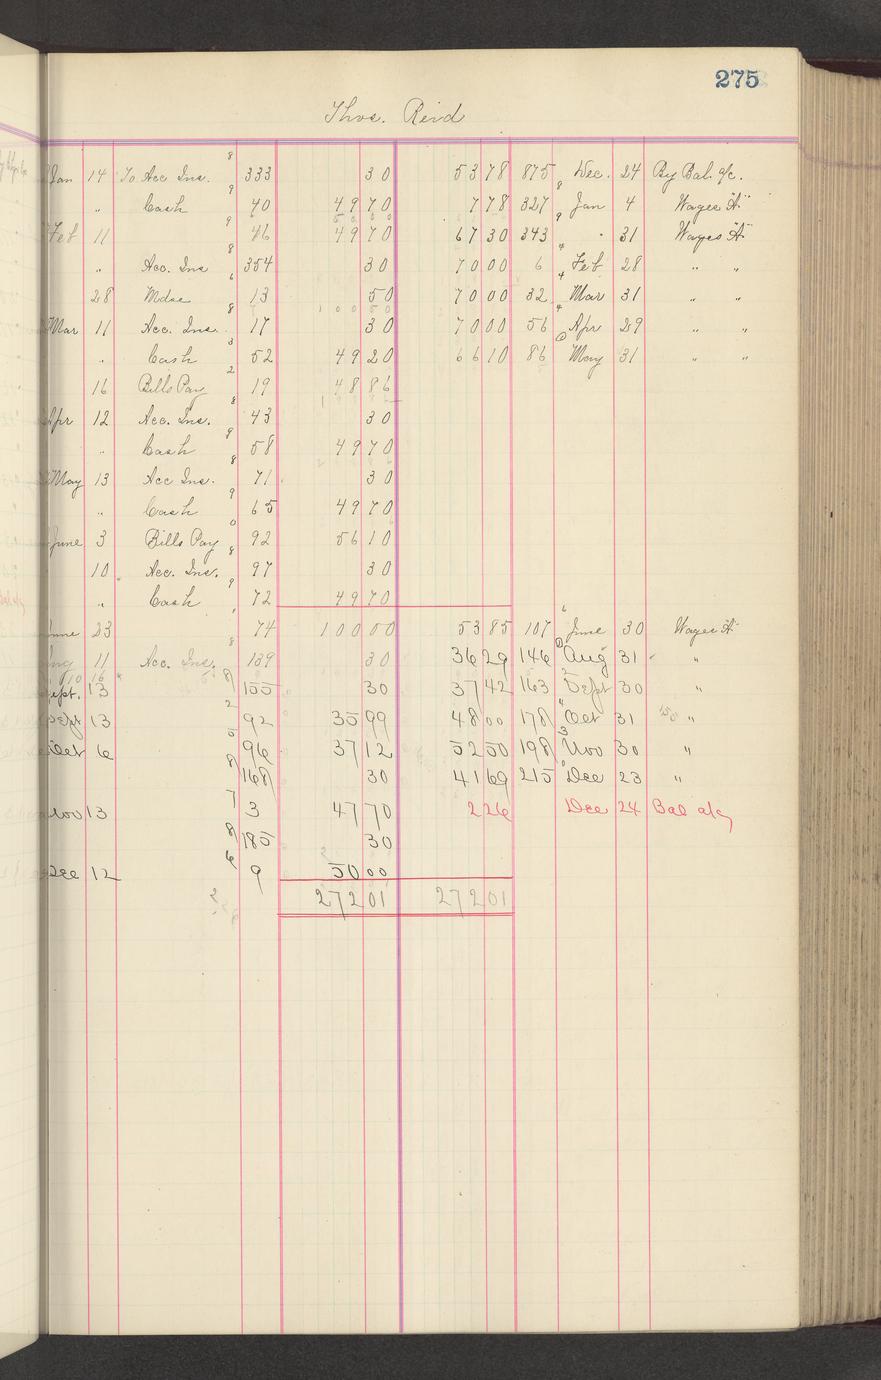 275
Thos. Reid
Jan 14 To Acc Ins. 8 333 30 53 78 875 8 Dec. 24 By Bal. a/c.
" Cash 9 40 49 70 7 78 327 9 Jan 4 Wages "A"
Feb 11 9 46 49 70 67 30 343 " 31 Wages "A"
" Acc. Ins 8 354 30 70 00 6 4 Feb 28 " "
28 Mdse 6 13 50 70 00 32 4 Mar 31 " "
Mar 11 Acc. Ins. 8 17 30 70 00 56 4 Apr 29 " "
" Cash 3 52 49 20 66 10 86 0 May 31 " "
16 Bills Pay 2 19 48 86
Apr 12 Acc. Ins. 8 43 30
" Cash 9 58 49 70
May 13 Acc Ins. 8 71 30
" Cash 9 65 49 70
June 3 Bills Pay 0 92 56 10
10 Acc. Ins. 8 97 30
" Cash 9 72 49 70
June 23 74 100 00 53 85 107 6 June 30 Wages "A"
Aug 11 Acc. Ins. 8 139 30 36 29 146 Aug 31 "
Sept. 13 8 155 30 37 42 163 2 Sept 30 "
Sept 13 2 92 35 99 48 00 178 " Oct 31 "
Oct 6 5 96 37 12 52 50 198 3 Nov 30 "
8 168 30 41 69 215 Dec 23 "
Nov 13 7 3 47 70 2 26 Dec 24 Bal a/c
8 185 30
Dec 12 6 9 50 00
272 01 272 01